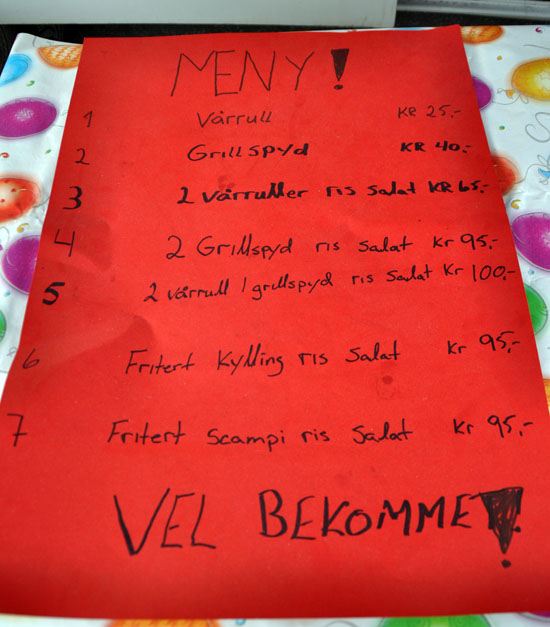 MENY!
1 Vårrull KR 25,-
2 Grillspyd KR 40,-
3 2 Vårruller ris salat KR 65,-
4 2 Grillspyd ris salat Kr 95,-
5 2 vårrull 1 grillspyd ris salat Kr 100,-
6 Fritert Kylling ris salat Kr 95,-
7 Fritert scampi ris salat Kr 95,-
VEL BEKOMME!